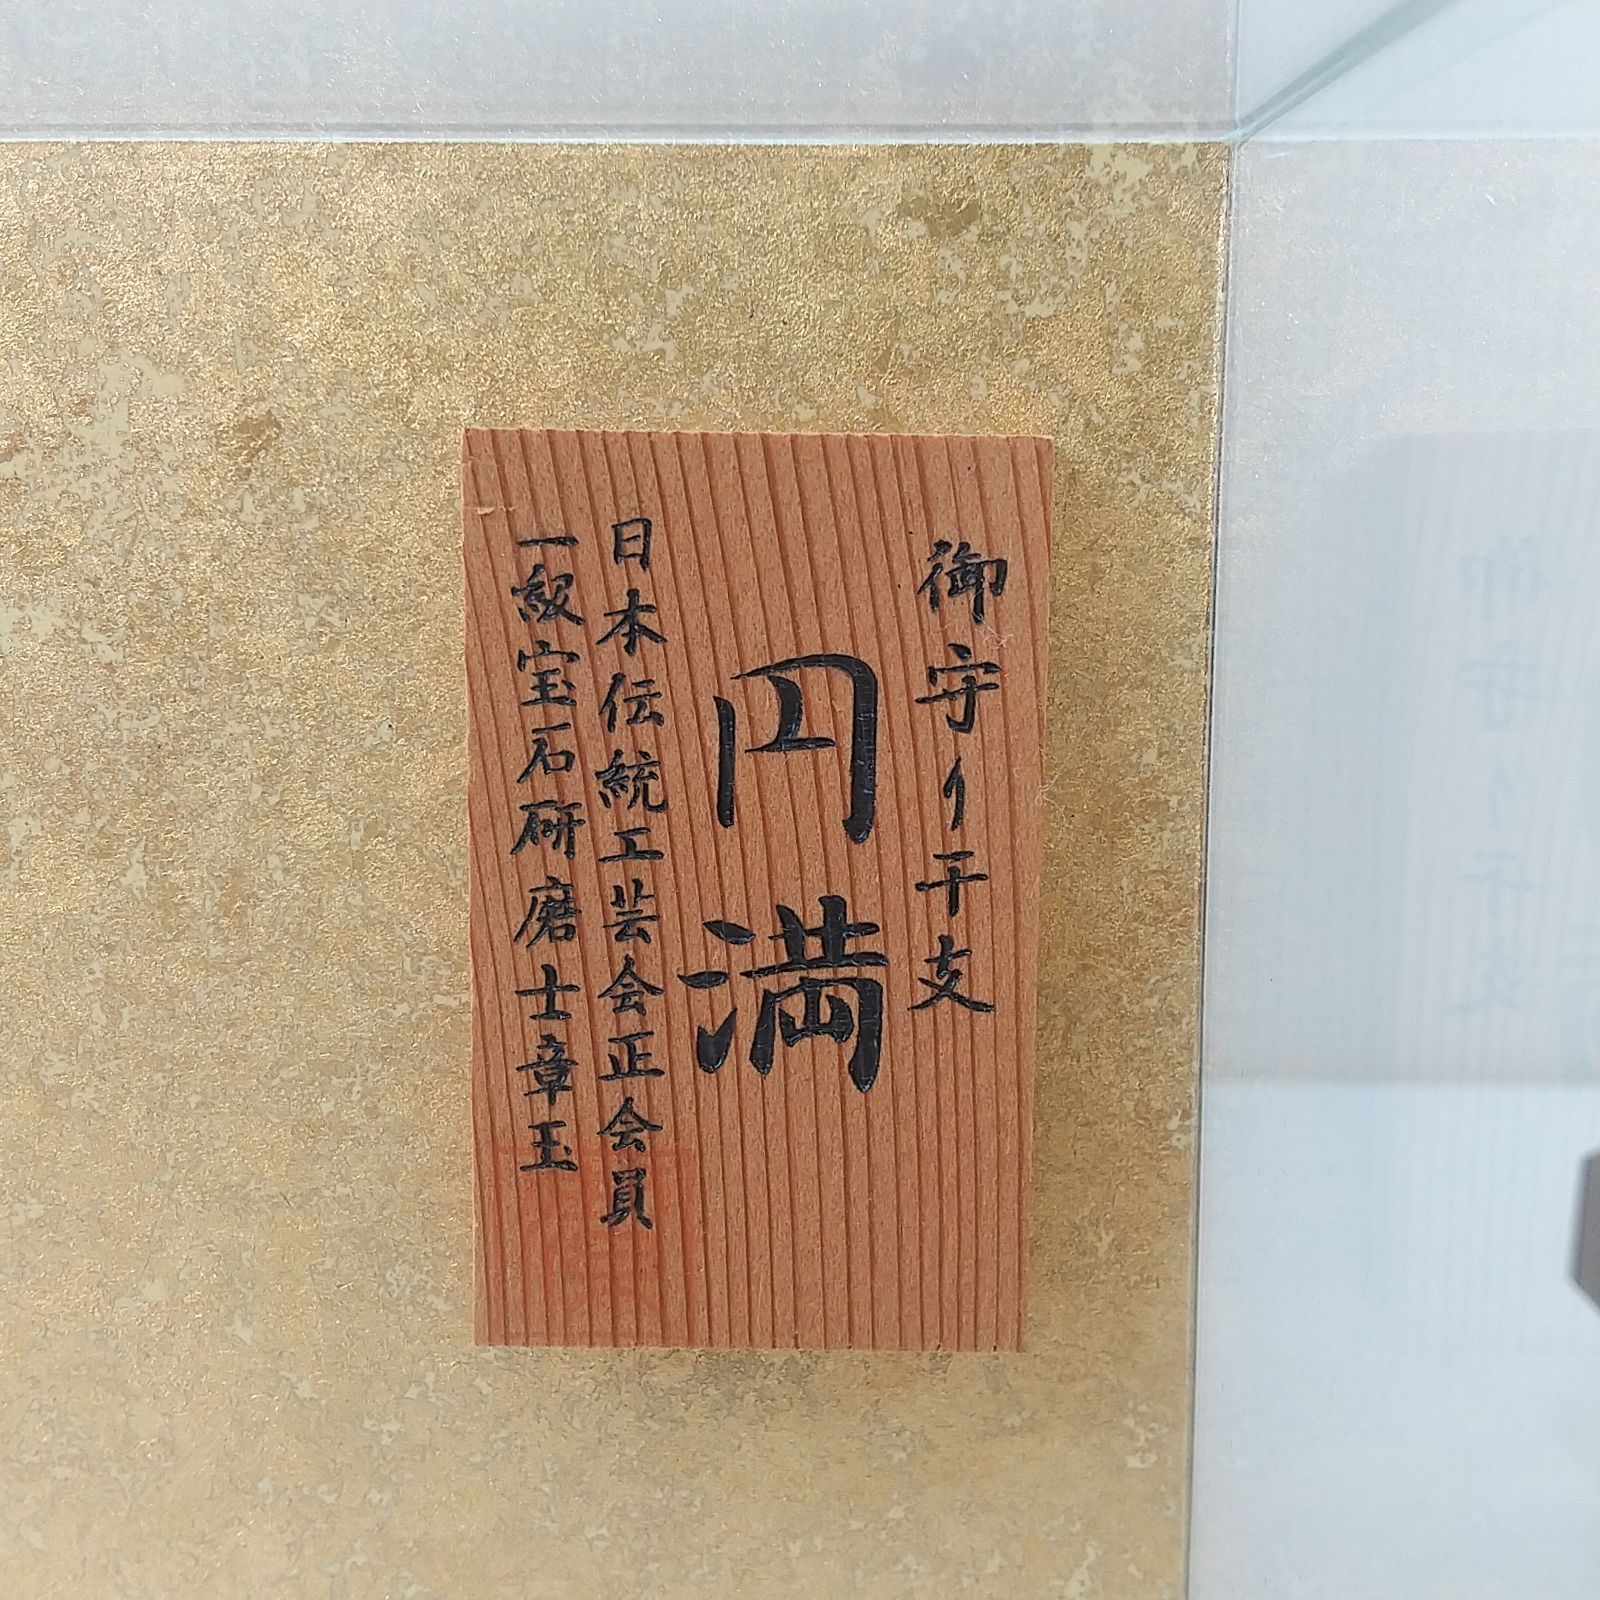 御守り干支
円満
日本伝統工芸会正会員
一級宝石研磨士章玉